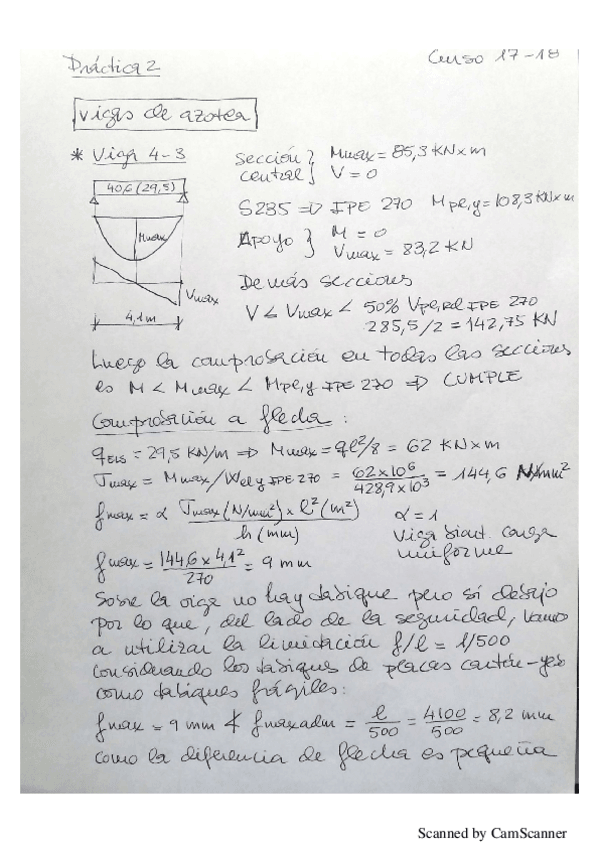 Práctica 2
Curso 17-18
Vigas de azotea
* Viga 4-3
Sección central } Mmax = 85,3 KN x m
V = 0
40,6 (29,5)
Mmax
Vmax
4,1 m
S235 => IPE 270 Mpl,y = 108,3 KN x m
Apoyo } M = 0
Vmax = 83,2 KN
Demás secciones
V < Vmax < 50% Vpl,Rd IPE 270
285,5/2 = 142,75 KN
Luego la comprobación en todas las secciones
es M < Mmax < Mpl,y IPE 270 => CUMPLE
Comprobación a flecha :
qELS = 29,5 KN/m => Mmax = ql²/8 = 62 KN x m
σmax = Mmax/Wel,y IPE 270 = 62x10⁶/428,9x10³ = 144,6 N/mm²
fmax = α σmax (N/mm²) x l² (m²) / h (mm)
α = 1
Viga biart. carga
uniforme
fmax = 144,6 x 4,1² / 270 = 9 mm
Sobre la viga no hay tabique pero sí debajo
por lo que, del lado de la seguridad, vamos
a utilizar la limitación f/l = 1/500
considerando los tabiques de placas cartón-yeso
como tabiques frágiles:
fmax = 9 mm ≮ fmaxadm = l/500 = 4100/500 = 8,2 mm
como la diferencia de flecha es pequeña
Scanned by CamScanner